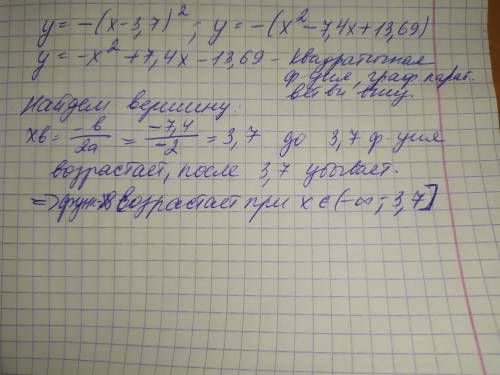 y = -(x-3,7)²; y = -(x²-7,4x+13,69)
y = -x²+7,4x-13,69 - квадратичная
ф-ция, граф. параб.
ветви вниз
Найдем вершину:
xв = -в/2a = -7,4/-2 = 3,7 до 3,7 ф-ция
возрастает, после 3,7 убывает.
=> возрастает при x ∈ (-∞; 3,7]